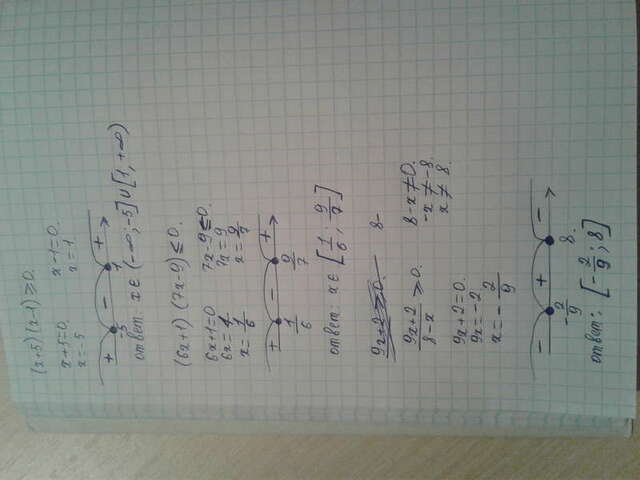 (x+5)(x-1)≥0.
x+5=0. x-1=0.
x=-5 x=1
+ - +
-5 1
ответ: x∈(-∞;-5]∪[1,+∞)
(6x+1) (7x-9)≤0.
6x+1=0 7x-9≤0.
6x=1 7x=9
x=1/6 x=9/7
+ - +
1/6 9/7
ответ: x∈[1/6; 9/7]
9x+2≥0. 8-
(9x+2)/(8-x)≥0. 8-x≠0.
-x≠-8.
x≠8.
9x+2=0.
9x=-2
x=-2/9
- + -
-2/9 8.
ответ: [-2/9; 8]